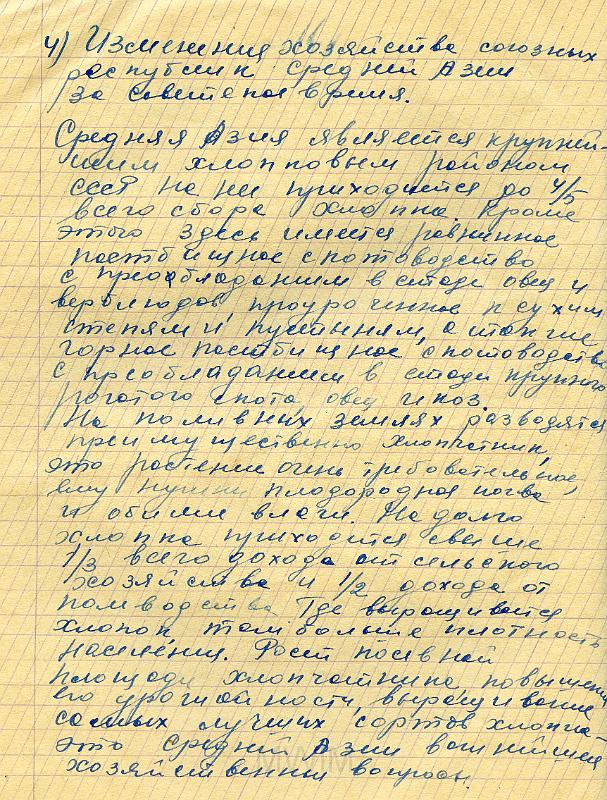 4) Изменения хозяйства союзных
республик средней Азии
за советское время.
Средняя Азия является крупней-
шим хлопковым районом
СССР на неё приходится до 4/5
всего сбора хлопка. Кроме
этого здесь имеется равнинное
пастбищное скотоводство
с преобладанием в стаде овец и
верблюдов, приуроченное к сухим
степям и пустыням, а так же
горное пастбищное скотоводство
с преобладанием в стаде крупного
рогатого скота, овец и коз.
На поливных землях разводятся
преимущественно хлопчатник,
это растение очень требовательное,
ему нужны плодородная почва
и обилие влаги. На долю
хлопка приходится свыше
1/3 всего дохода от сельского
хозяйства и 1/2 дохода от
полеводства. Где выращивается
хлопок, там больше плотность
населения. Рост посевной
площади хлопчатника повышение
его урожайности, выращивание
самых лучших сортов хлопка-
это средней Азии важнейшей
хозяйственный вопросы.
MWIM